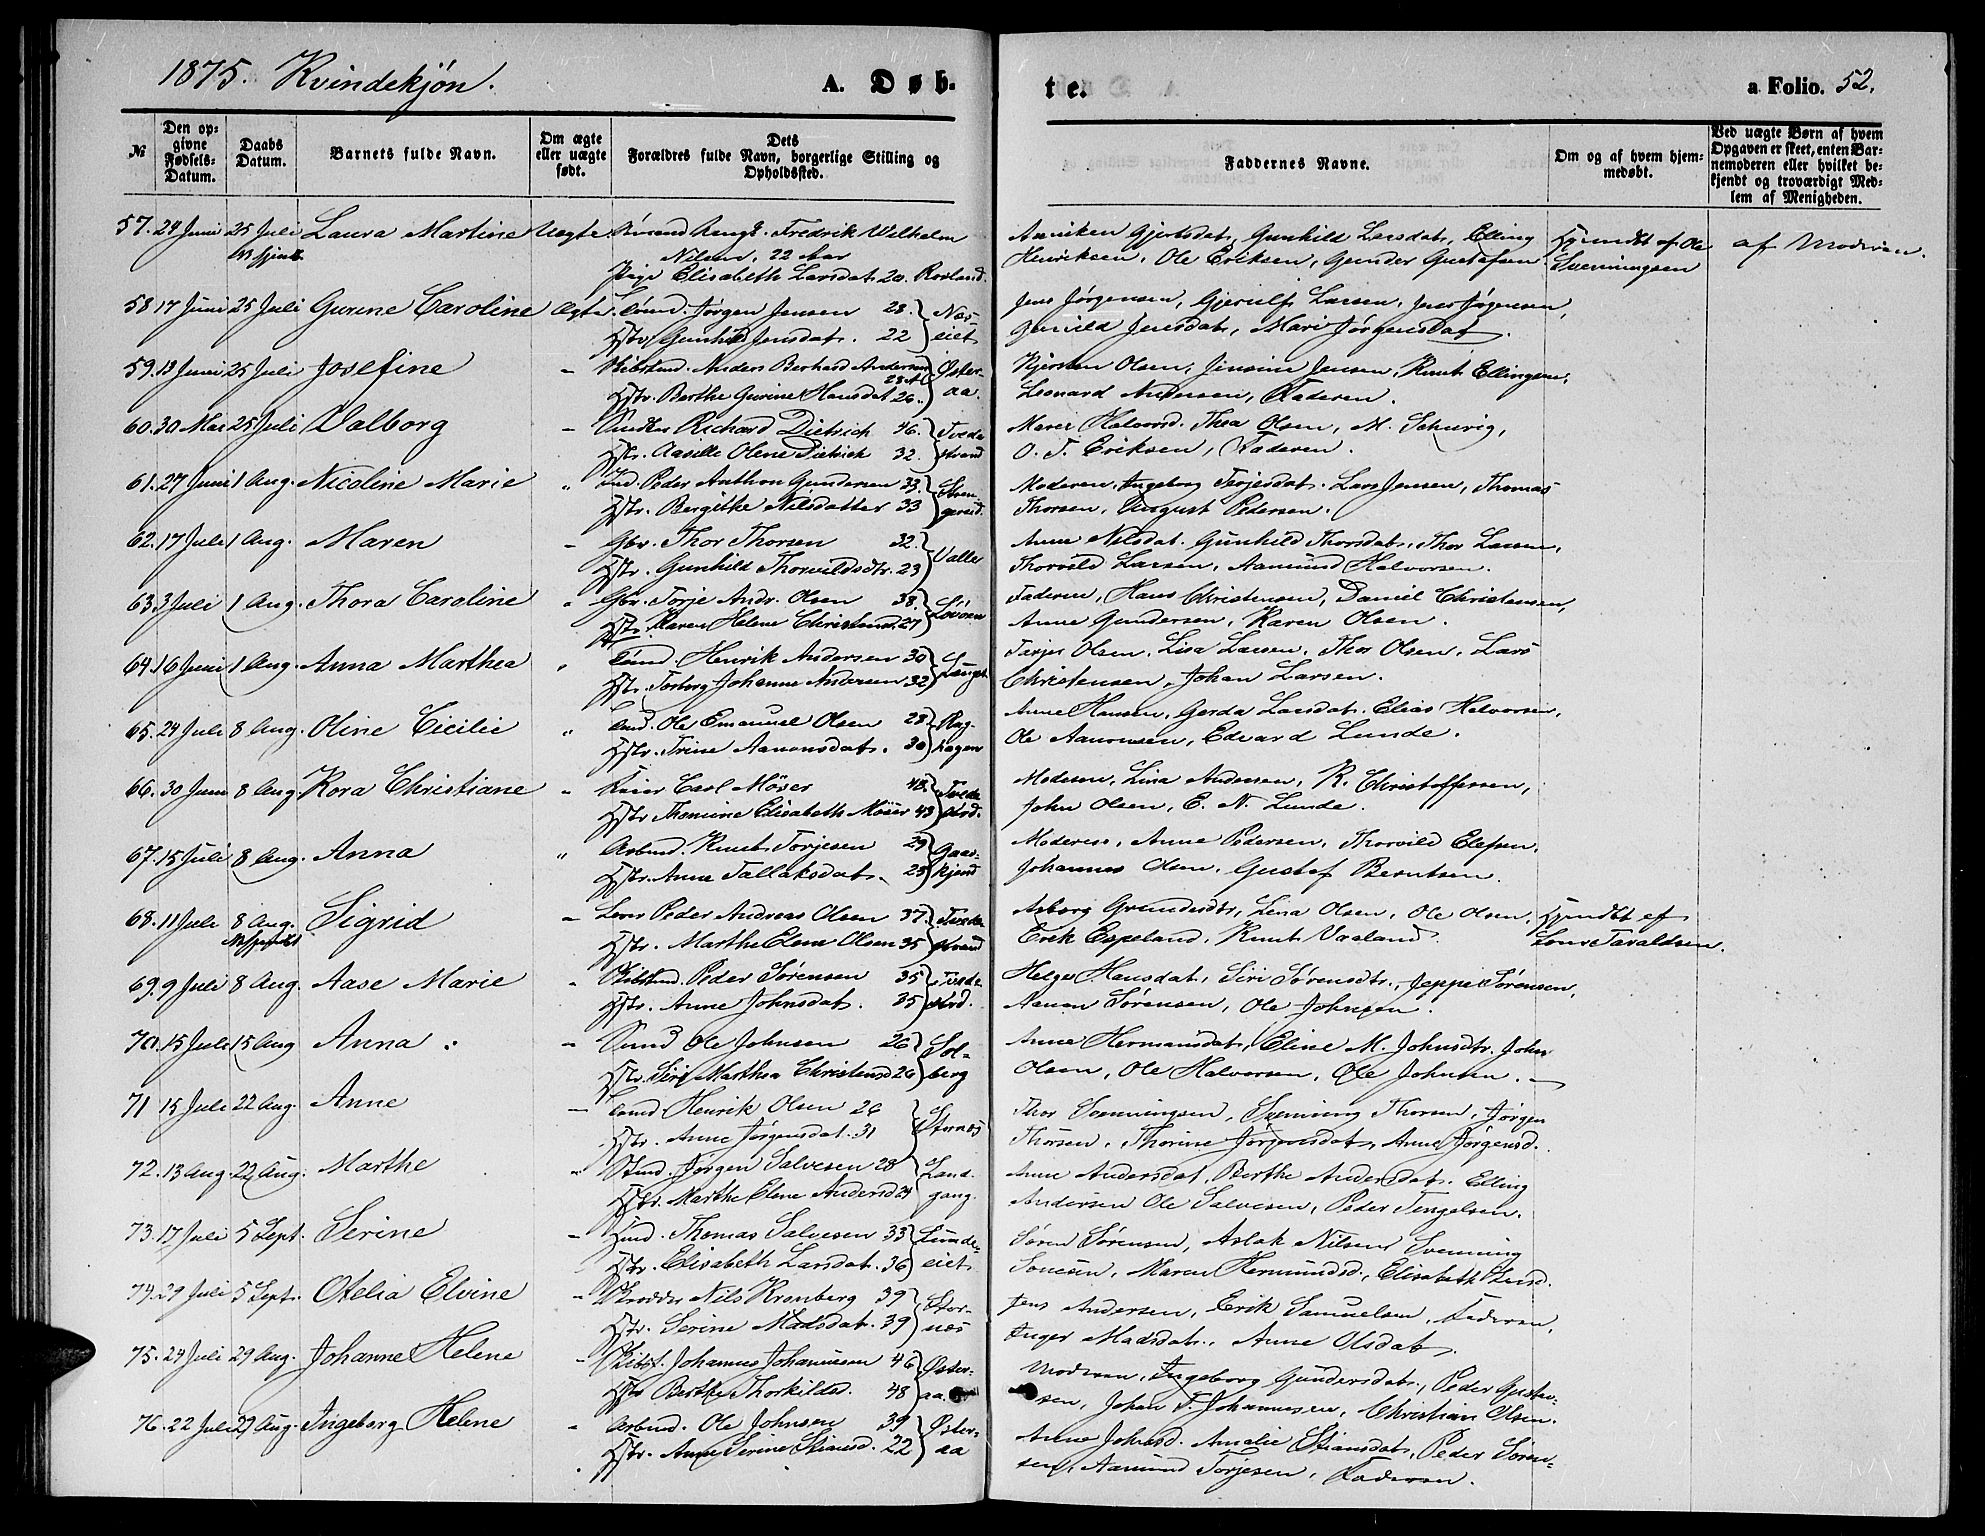 1875. Kvindekjøn.
A. Døb-
te.
a Folio. 52.
№
Den op-
givne
Fødsels-
Datum.
Daabs
Datum.
Barnets fulde Navn.
Om ægte
eller uægte
født.
Dets
Forældres fulde Navn, borgerlige Stilling og
Opholdssted.
Faddernes Navne.
Om og af hvem hjem-
medøbt.
Ved uægte Børn af hvem
Opgaven er skeet, enten Bar-
nemoderen eller hvilket be-
kjendt og troværdigt Med-
lem af Menigheden.
57. 24 Juni 25 Juli Laura Martine Uægte. Fredrik Vilhelm
Nilsen, 22 Aar
Pige Elisabeth Larsdat. 20. Rovland.
Anniken Gjertsdat, Gunhild Larsdat, Elling
Henriksen, Ole Eriksen, Gunder Gustafsen
Hjemdt af Ole
Svenningsen
af Moderen.
58 17 Juni 25 Juli Gurine Caroline Ægte. Jørgen Jensen 28. Næs-
Hstr. Gunhild Jensdat. 22 eiet
Jens Jørgensen, Gjerulf Larsen, Jens Jørgensen,
Gunild Jensdat, Mari Jørgensdat.
59. 13 Juni 25 Juli Josefine - Anders Berhard Andersen Øster-
Hstr. Berthe Gurine Hansdat 26. aa.
Kjersten Olsen, Jensine Jensen, Knut Ellingsen,
Leonard Andersen, Faderen.
60. 30 Mai 25 Juli Valborg - Snedker Richard Dietrich 46. Tvede
Hstr. Aasille Olene Dietrich 32. strand
Maren Halvorsd. Thea Olsen, M. Schuvig,
O. T. Eriksen, Faderen.
61. 27 Juni 1 Aug. Nicoline Marie " Ind. Peder Anthon Gundersen 33.
Hstr. Bergitke Nilsdatter 33
Moderen, Ingeborg Terjesdat. Lars Jensen, Thomas
Thorsen, August Pedersen.
62. 17 Juli 1 Aug. Maren - Gbr. Thor Thorsen 32. Valle
Hstr. Gunhild Thorvildsdtr. 23
Anne Nilsdat. Gunhild Thorsdat. Thor Larsen,
Thorvild Larsen, Aamund Halvorsen.
63. 3 Juli 1 Aug. Thora Caroline " Gbr. Torje Andr. Olsen 38.
Hstr. Karen Helene Christensd. 27
Faderen, Hans Christensen, Daniel Christensen,
Anne Gundersen, Karen Olsen.
64. 16 Juni 1 Aug. Anna Marthea " Henrik Andersen 30
Hstr. Torborg Johanne Andersen 32
Tarjer Olsen, Lisa Larsen, Thor Olsen, Lars
Christensen, Johan Larsen.
65. 24 Juli 8 Aug. Oline Cicilie " Ole Emanuel Olsen 28.
Hstr. Trine Aanonsdat. 30 hagen
Anne Hansen, Gerda Larsdat. Elias Halvorsen,
Ole Aanonsen, Edvard Lunde.
66. 30 Juni 8 Aug. Kora Christiane " Carl Möser 48. Tvede
Hstr. Thomine Elisabeth Möser 43 strd.
Moderen, Lina Andersen, K. Christoffersen,
John Olsen, E. N. Lunde.
67. 15 Juli 8 Aug. Anna " Arbmd. Knut Torjesen 29 Gaas-
Hstr. Anne Tallaksdat. 23 kjend
Moderen, Anne Pedersen, Thorvild Elefsen,
Johannes Olsen, Gustaf Berntsen.
68. 11 Juli 8 Aug. Sigrid - Peder Andreas Olsen 37. Tvede
Hstr. Marthe Elene Olsen 35 strand
Asborg Gundersdtr, Lena Olsen, Ole Olsen,
Erik Espeland, Knut Vaaland.
Hjemdt af
Lovise Tavaldsen.
69. 9 Juli 8 Aug. Aase Marie " Peder Sørensen 35 Tvede-
Hstr. Anne Johnsdat. 35 strd.
Helge Hansdat, Siri Sørensdtr., Jeppe Sørensen,
Aanon Sørensen, Ole Johnsen.
70. 15 Juli 15 Aug Anna - Ole Johnsen 26 Sol-
Hstr. Siri Marthea Christensd 26 berg
Anne Hermansdat, Eline M. Johnsdtr. John
Olsen, Ole Halvorsen, Ole Johnsen.
71 15 Juli 22 Aug. Anne - Henrik Olsen 26 Stornæs
Hstr. Anne Jørgensdat. 31
Thor Svenningsen, Svenning Thorsen, Jørgen
Thorsen, Thorine Jørgensdat, Anne Jørgensd.
72. 13 Aug 22 Aug. Marthe " Jørgen Salvesen 28 Land-
Hstr. Marthe Elene Andersd 24 gang.
Anne Andersdat, Berthe Andersdat. Elling
Andersen Ole Salvesen, Peder Tengelsen.
73. 17 Juli 5 Sept. Serine - Thomas Salvesen 33 Lunde-
Hstr. Elisabeth Larsdat. 36 eiet
Søren Sørensen, Aslak Nilsen, Svenning
Maren Hermundsd., Elisabeth
74. 29 Juli 5 Sept. Otelia Elvine - Skrædder Nils Kronberg 39 Stor-
Hstr. Serine Madsdat. 39 næs
Jens Andersen, Erik Samuelsen, Faderen,
Inger Madsdat., Anne Olsdat.
75. 24 Juli 29 Aug. Johanne Helene - Johannes Johannesen 46 Øster-
Hstr Berthe Thorkildsd. 48 aa.
Moderen, Ingeborg Gundersdat., Peder Gustav-
sen, Johan T. Johannesen, Christian Olsen.
76. 22 Juli 29 Aug. Ingeborg Helene - Arbmd. Ole Johnsen 39 Øster-
Hstr. Anne Serine Stiansd. 22 aa
Anne Johnsd. Amalie Stiansdat, Peder Søren-
sen, Aamund Torjesen, Faderen.